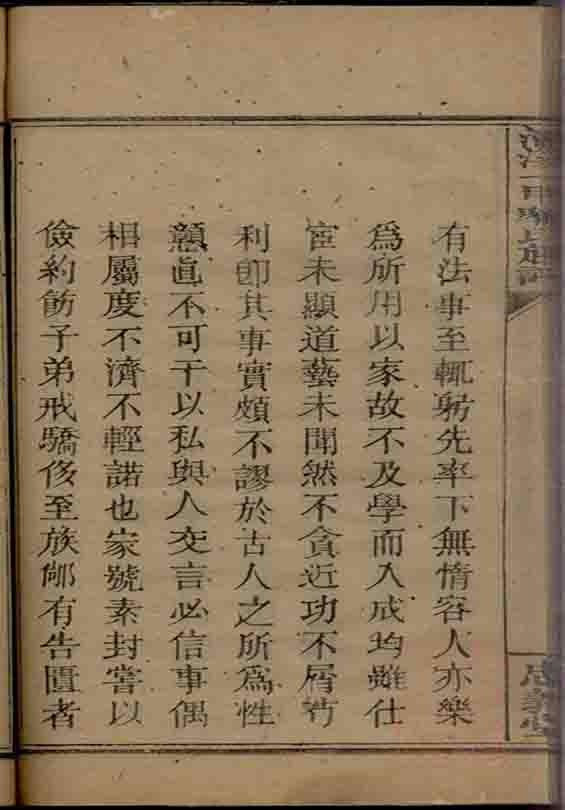 有法事至輒躬先率下無惰容人亦樂
爲所用以家故不及學而入成均雖仕
宦未顯道藝未聞然不貪近功不屑苟
利卽其事實頗不謬於古人之所爲性
戇直不可干以私與人交言必信事偶
相屬度不濟不輕諾也家號素封嘗以
儉約飭子弟戒驕侈至族鄰有告匱者